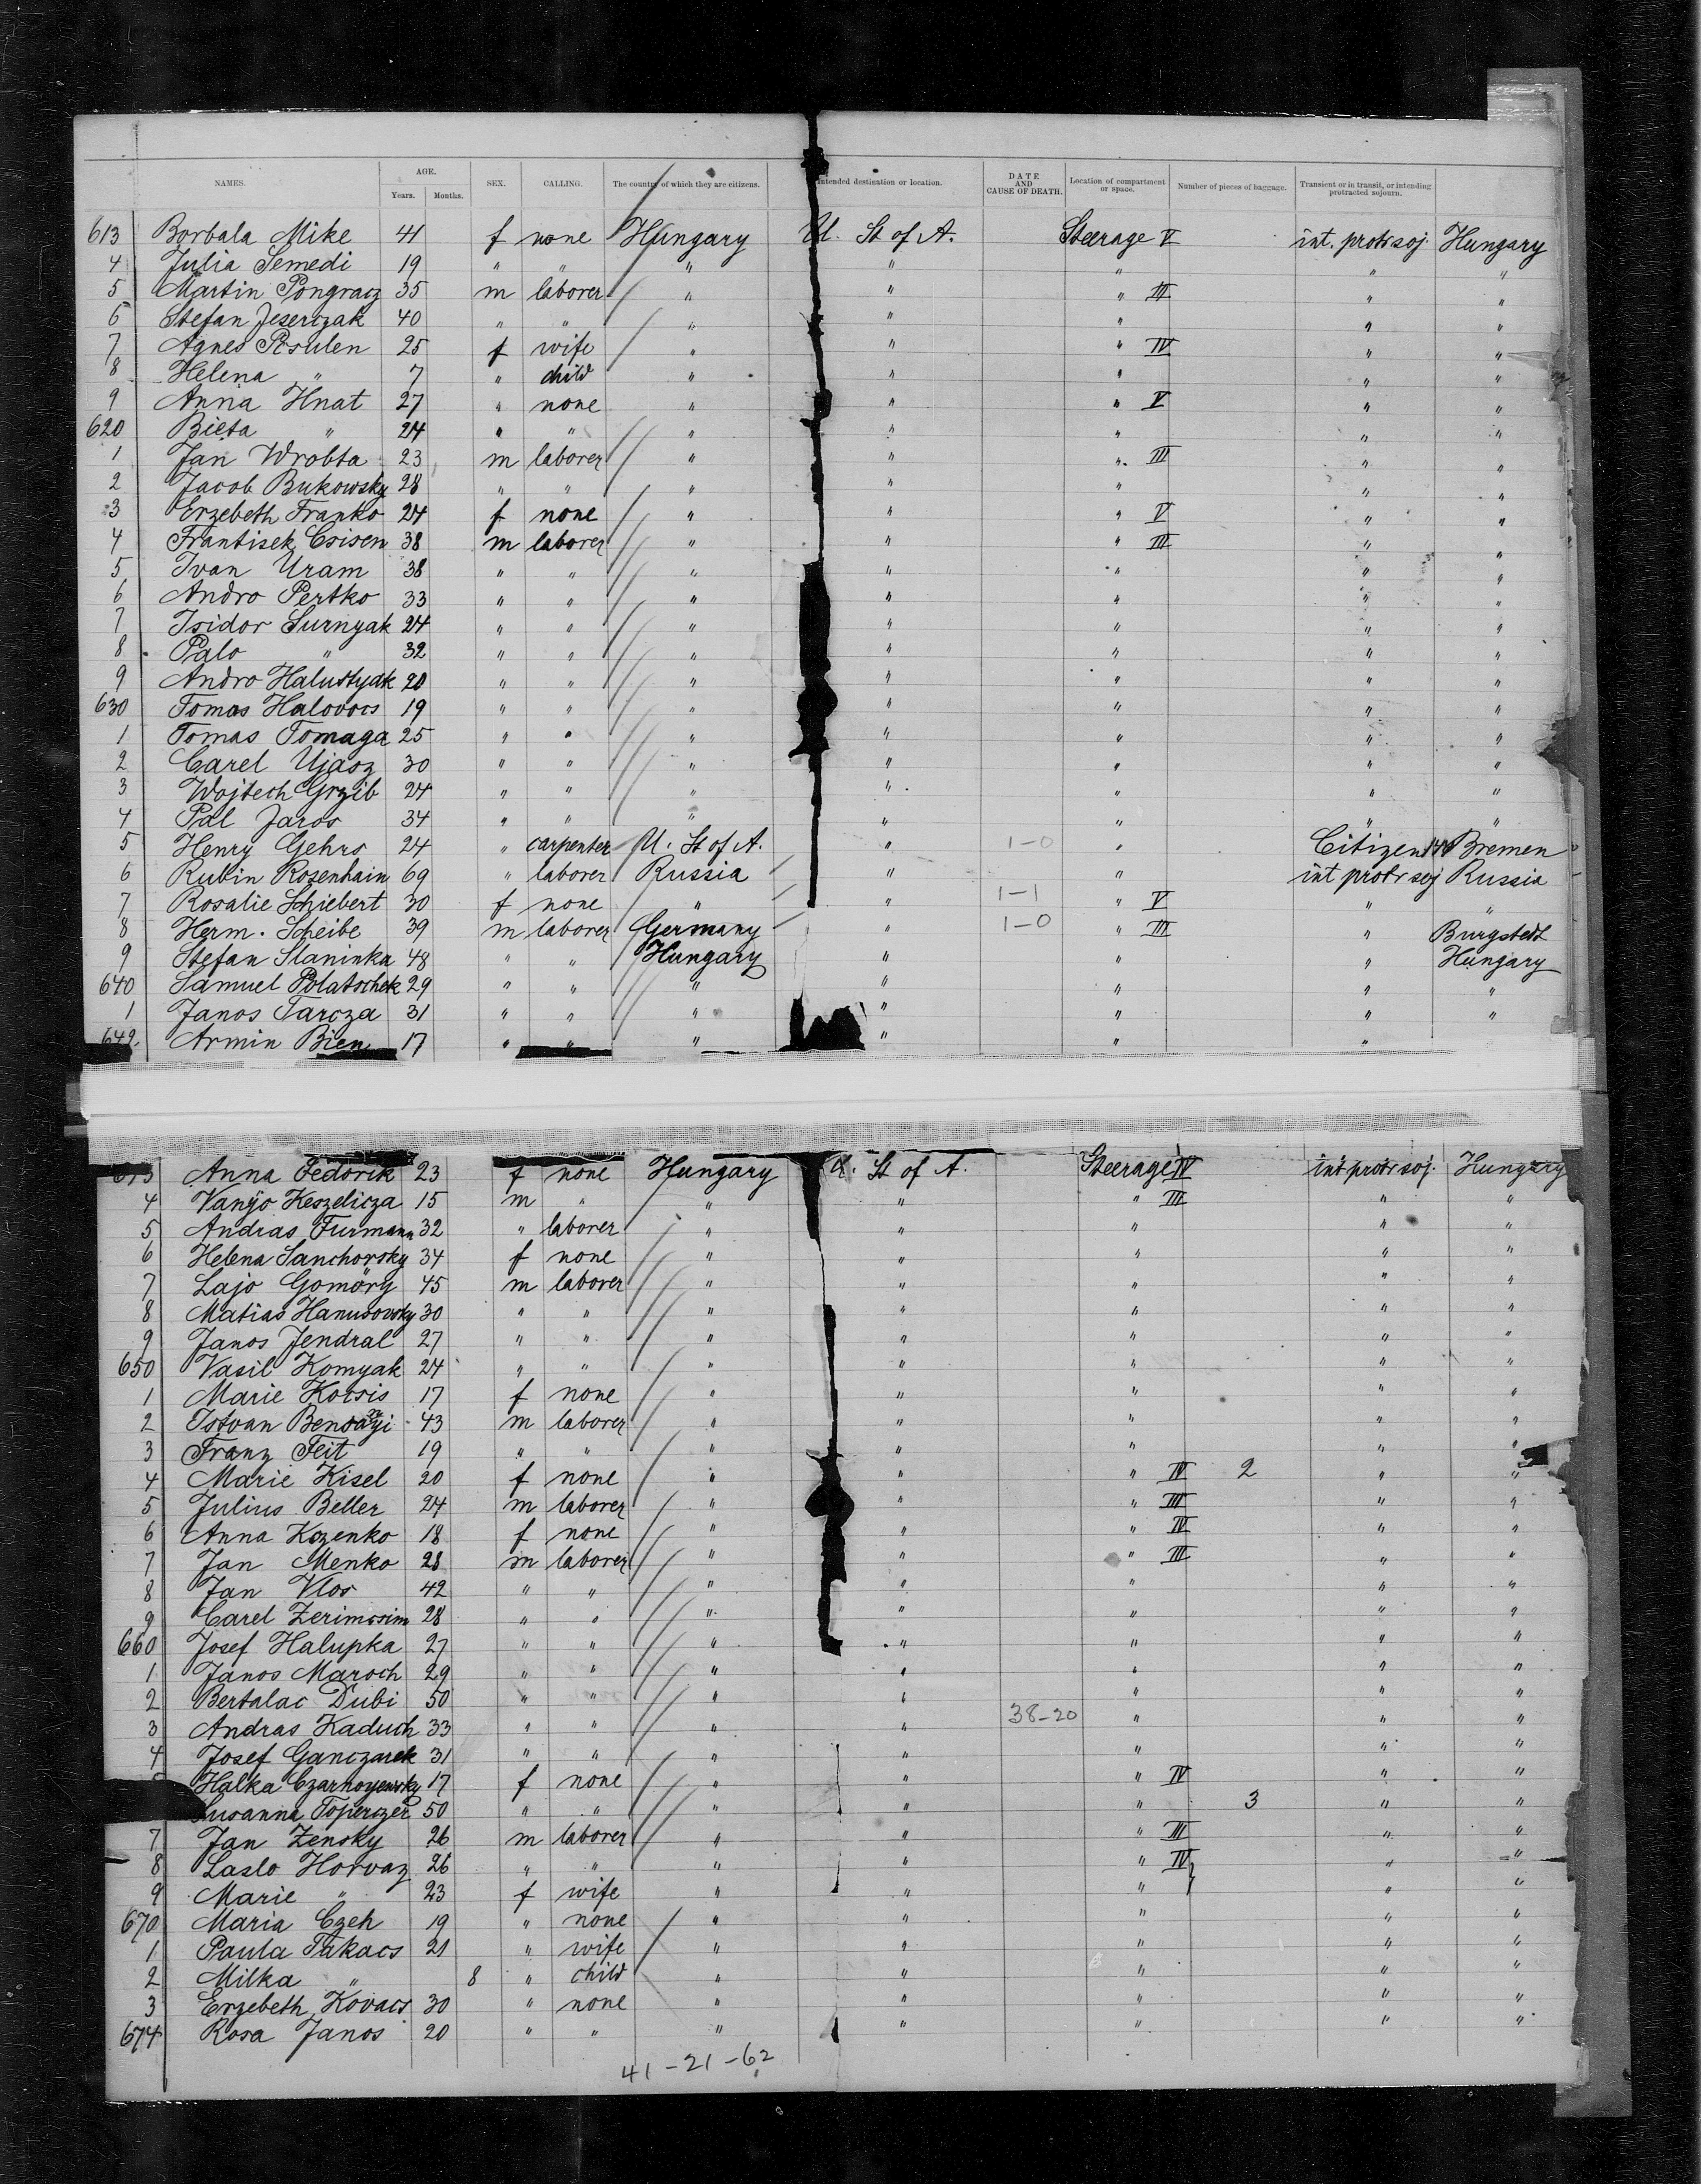 NAMES. AGE. Years. Months. SEX. CALLING. The country of which they are citizens. Intended destination or location. DATE AND CAUSE OF DEATH. Location of compartment or space. Number of pieces of baggage. Transient or in transit, or intending protracted sojourn.
613 Borbala Mike 41 f none Hungary U. St of A. Steerage V int. protr soj. Hungary
4 Julia Semedi 19 " " " " " " "
5 Martin Pongracz 35 m laborer " " " III " "
6 Stefan Jeserczak 40 " " " " " " "
7 Agnes 25 f wife " " " IV " "
8 Helena " 7 " child " " " " "
9 Anna Hnat 27 " none " " " V " "
620 Bieta " 24 " " " " " " "
1 Jan Wrobta 23 m laborer " " " III " "
2 Jacob Bukowsky 28 " " " " " " "
3 Erzebeth Franko 24 f none " " " V " "
4 Frantisek Csisen 38 m laborer " " " III " "
5 Ivan Uram 38 " " " " " " "
6 Andro Pertko 33 " " " " " " "
7 Isidor Surnyak 24 " " " " " " "
8 Palo " 32 " " " " " " "
9 Andro Halustyak 20 " " " " " " "
630 Tomas Halovocs 19 " " " " " " "
1 Tomas Tomaga 25 " " " " " " "
2 Carel Ujasz 30 " " " " " " "
3 Wojtech Grzib 24 " " " " " " "
4 Pal Jaros 34 " " " " " " "
5 Henry Gehrs 24 " carpenter U. St of A. " 1-0 " Citizen Bremen
6 Rubin Rosenhain 69 " laborer Russia " " int protr soj Russia
7 Rosalie Schiebert 30 f none " " 1-1 " V " "
8 Herm. Scheibe 39 m laborer Germany " 1-0 " III " Burgstedt
9 Stefan Slaninka 48 " " Hungary " " " Hungary
640 Samuel Polatschek 29 " " " " " " "
1 Janos Tarcza 31 " " " " " " "
642. Armin Bien 17 " " " " " "
643 Anna Fedorik 23 f none Hungary U. St of A. Steerage IV int protr soj. Hungary
4 Vanyo Keszelicza 15 m " " " " III " "
5 Andras Furmann 32 " laborer " " " " "
6 Helena Sanchorsky 34 f none " " " " "
7 Lajo Gomöry 45 m laborer " " " " "
8 Matias Hanusovsky 30 " " " " " " "
9 Janos Jendral 27 " " " " " " "
650 Vasil Komyak 24 " " " " " " "
1 Marie Kocsis 17 f none " " " " "
2 Istvan 43 m laborer " " " " "
3 Franz Feit 19 " " " " " " "
4 Marie Kisel 20 f none " " " IV 2 " "
5 Julius Beller 24 m laborer " " " III " "
6 Anna Kozenko 18 f none " " " IV " "
7 Jan Menko 28 m laborer " " " III " "
8 Jan Vlos 42 " " " " " " "
9 Carel Zerimosim 28 " " " " " " "
660 Josef Halupka 27 " " " " " " "
1 Janos Maroch 29 " " " " " " "
2 Bertalac Dubi 50 " " " " " " "
3 Andras Kaduch 33 " " " " 38-20 " " "
4 Josef Ganczarek 31 " " " " " " "
Halka Czarnoyewsky 17 f none " " " IV " "
Susanna Toperczer 50 " " " " " 3 " "
7 Jan Zensky 26 m laborer " " " III " "
8 Laslo Horvaz 26 " " " " " IV " "
9 Marie " 23 f wife " " " " "
670 Maria Czeh 19 " none " " " " "
1 Paula Takacs 21 " wife " " " " "
2 Milka " 8 " child " " " " "
3 Erzebeth Kovacs 30 " none " " " " "
674 Rosa Janos 20 " " " " " " "
41-21-62